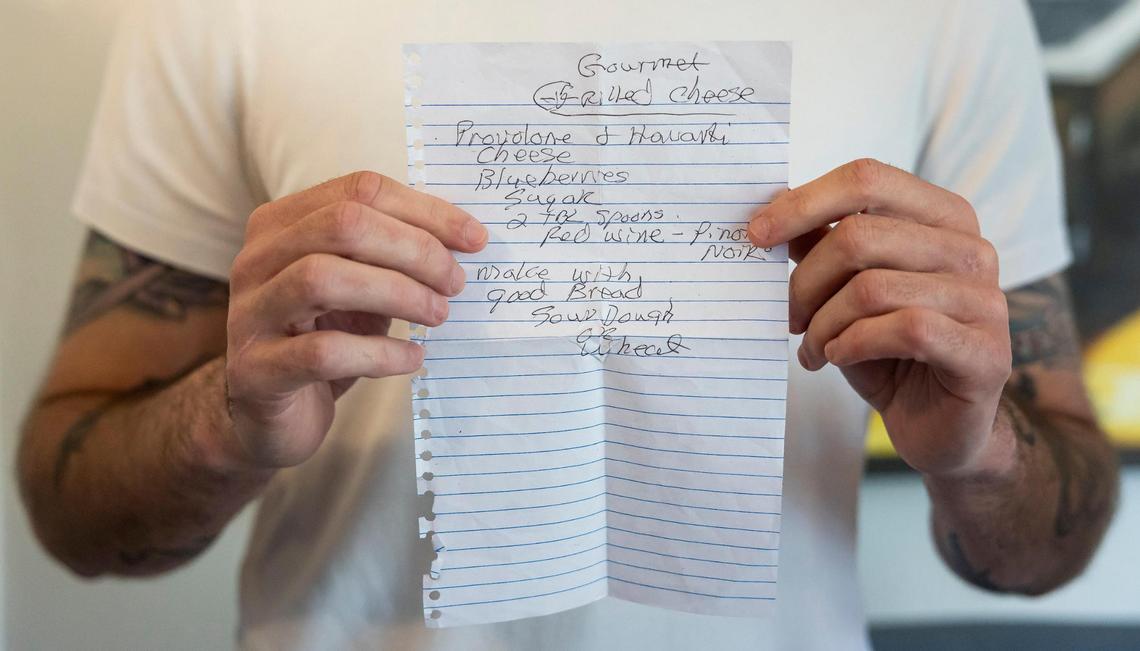 Gourmet
Grilled Cheese
Provolone & Havarti
Cheese
Blueberries
Sugar
2 TBL Spoons.
Red wine - Pinot
Noir
Make with
good Bread
Sour Dough
or
Wheat